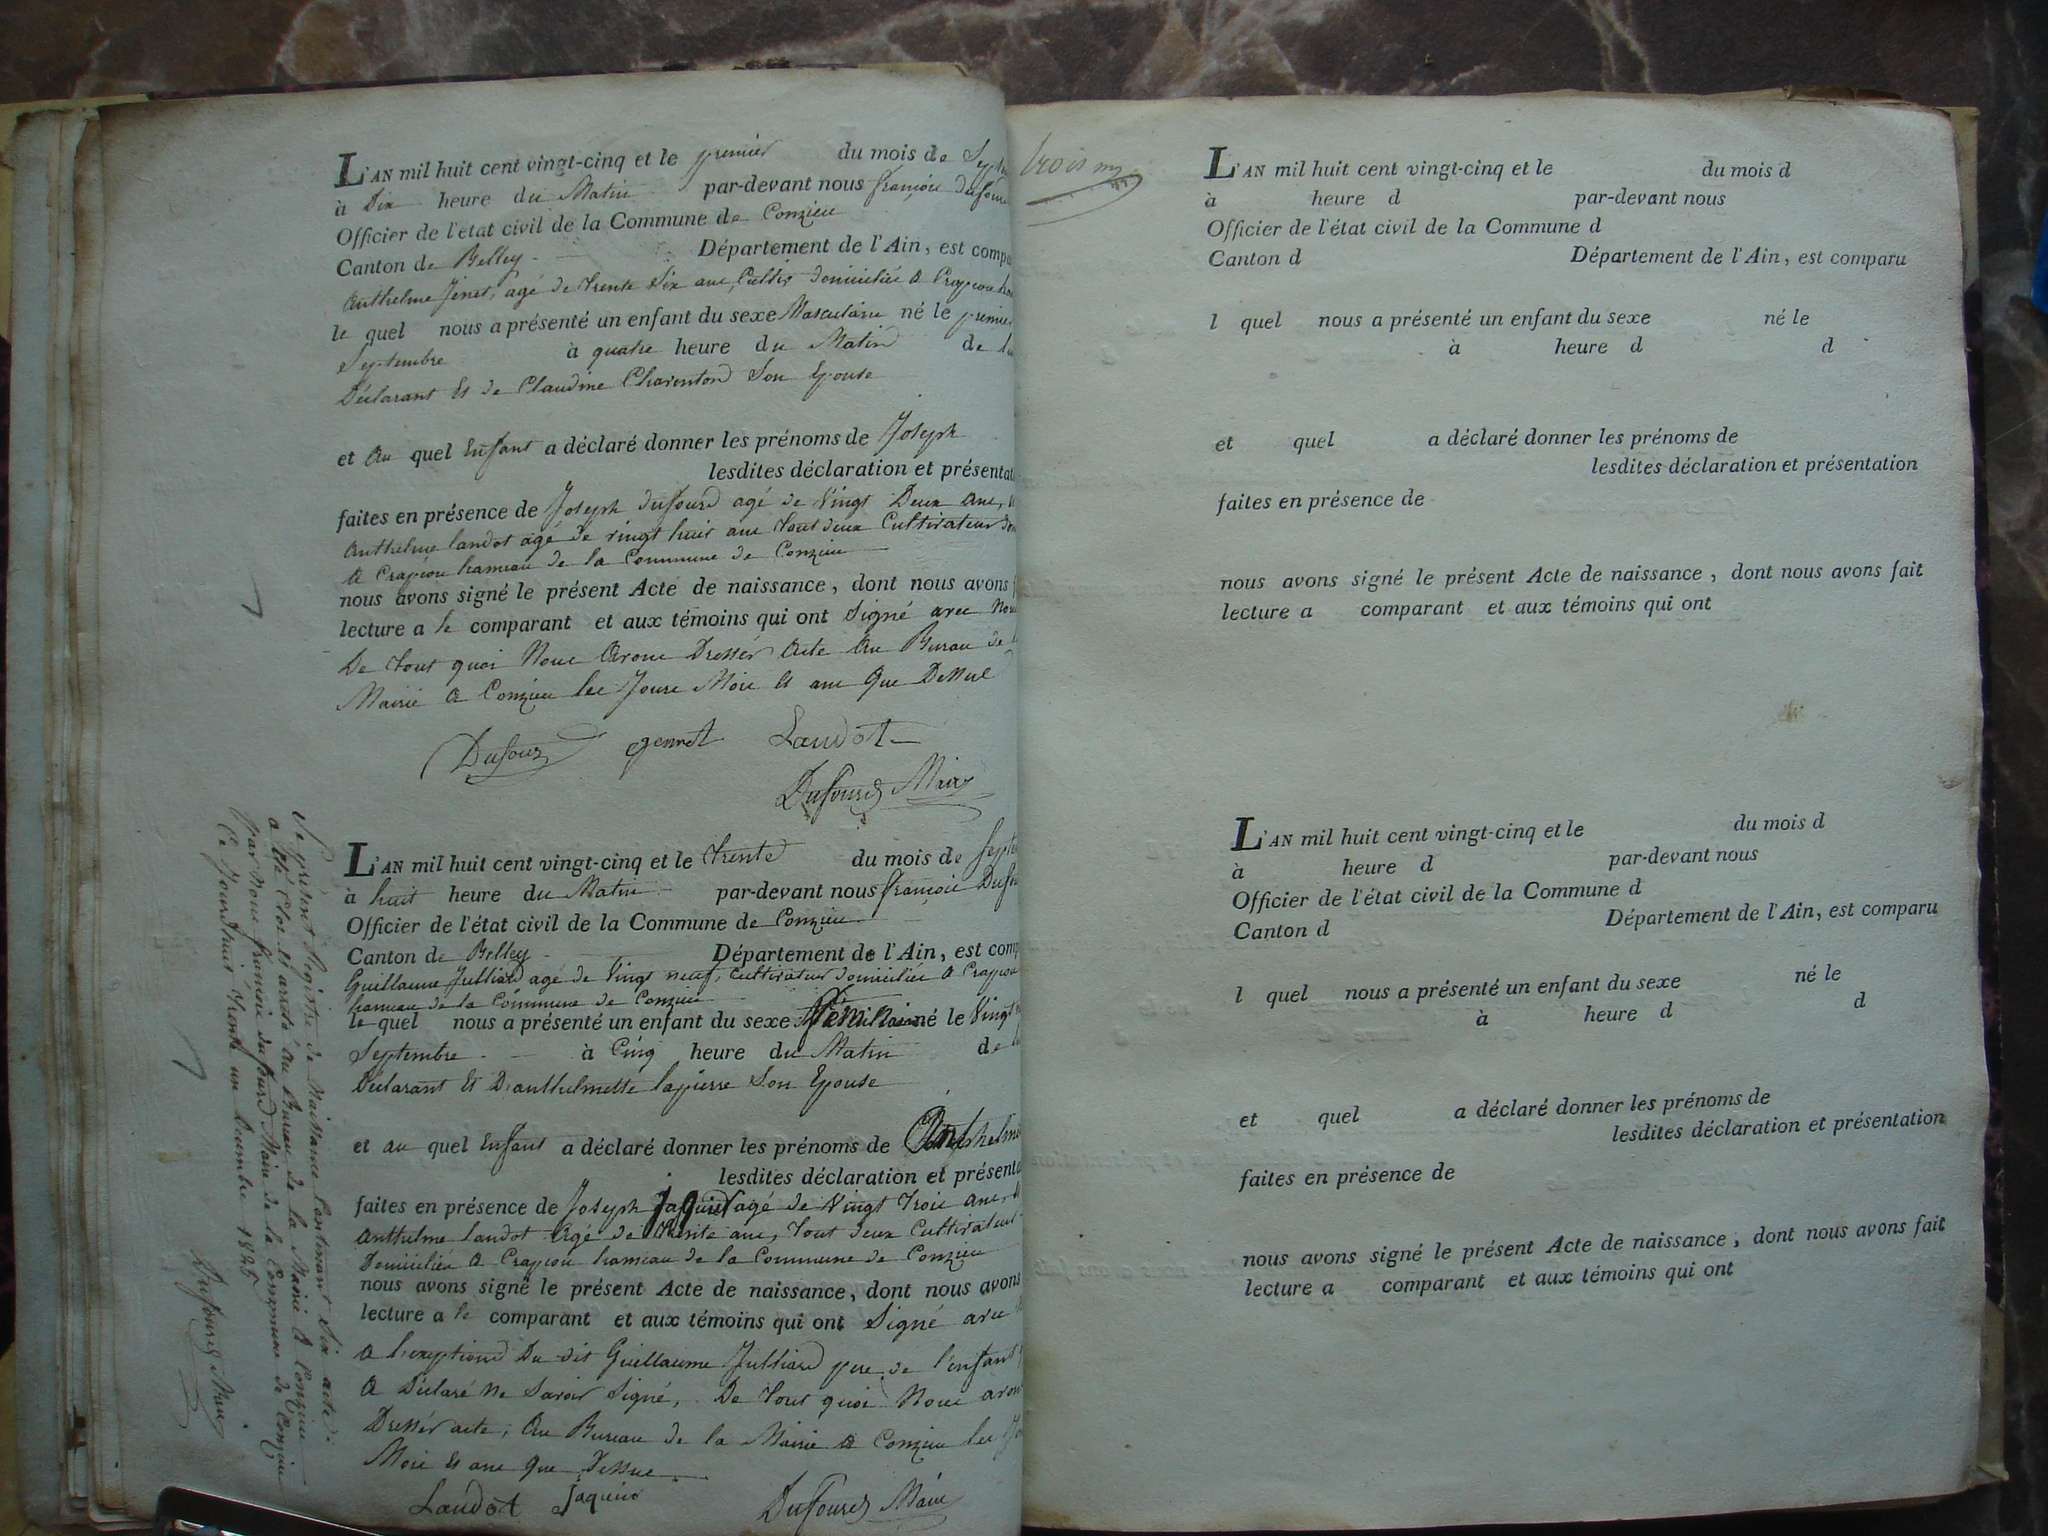 L'AN mil huit cent vingt-cinq et le premier du mois de Sept
à Dix heure du Matin par-devant nous françois Dufour
Officier de l'état civil de la Commune de Conzieu
Canton de Belley Département de l'Ain, est compa
Anthelme Jenet, agé de trente Six ans, Cultir domicilié a Crapiou ha
le quel nous a présenté un enfant du sexe Masculain né le premier
Septembre à quatre heure du Matin de lui
Déclarant Et de Claudine Charenton Son Epouse
et Au quel Enfant a déclaré donner les prénoms de Joseph
lesdites déclaration et présentat
faites en présence de Joseph dufourd agé de Vingt Deux ans,
Anthelme landot agé de vingt huit ans tout deux Cultivateur do
a Crapiou hameau de la Commune de Conzieu
nous avons signé le présent Acte de naissance, dont nous avons f
lecture a le comparant et aux témoins qui ont Signé avec Nou
De tout quoi Nous Avons Dressér Acte Au Bureau de
Mairie a Conzieu les Jours Mois et ans Que Dessus
Dufour genret Landot
Dufourd Maire
L'AN mil huit cent vingt-cinq et le trente du mois de Septe
à huit heure du Matin par-devant nous françois Dufou
Officier de l'état civil de la Commune de Conzieu
Canton de Belley Département de l'Ain, est comp
Guillaume Julliard agé de Vingt neuf, Cultivateur domicilié a Crapiou
hameau de la Commune de Conzieu
le quel nous a présenté un enfant du sexe né le Vingt
Septembre à Cinq heure du Matin de lu
Déclarant Et D'anthelmette lapierre Son Epouse
et au quel Enfant a déclaré donner les prénoms de Anthelme
lesdites déclaration et présenta
faites en présence de Joseph jaquin agé de Vingt trois ans,
Anthelme landot Agé de trente ans, tout deux Cultivateur
Domicilié a Crapiou hameau de la Commune de Conzieu
nous avons signé le présent Acte de naissance, dont nous avons
lecture a le comparant et aux témoins qui ont Signé avec
a l'exception Du dit Guillaume Julliard pere de l'enfant
a Déclaré Ne Savoir Signé, De tout quoi Nous avon
Dressér acte, Au Bureau de la Mairie a Conzieu les Jo
Mois Et ans Que Dessus
Landot jaquin Dufourd Maire
Le présent Registre de Naissance Contenant Six acte
a été Clos et arreté au Bureau de la Mairie a Conzieu
par Nous françois dufourd Maire de la Commune de Conzieu
Ce Jourd'huit trente un Décembre 1825
Dufourd Maire
trois
L'AN mil huit cent vingt-cinq et le du mois d
à heure d par-devant nous
Officier de l'état civil de la Commune d
Canton d Département de l'Ain, est comparu
l quel nous a présenté un enfant du sexe né le
à heure d d
et quel a déclaré donner les prénoms de
lesdites déclaration et présentation
faites en présence de
nous avons signé le présent Acte de naissance, dont nous avons fait
lecture a comparant et aux témoins qui ont
L'AN mil huit cent vingt-cinq et le du mois d
à heure d par-devant nous
Officier de l'état civil de la Commune d
Canton d Département de l'Ain, est comparu
l quel nous a présenté un enfant du sexe né le
à heure d d
et quel a déclaré donner les prénoms de
lesdites déclaration et présentation
faites en présence de
nous avons signé le présent Acte de naissance, dont nous avons fait
lecture a comparant et aux témoins qui ont